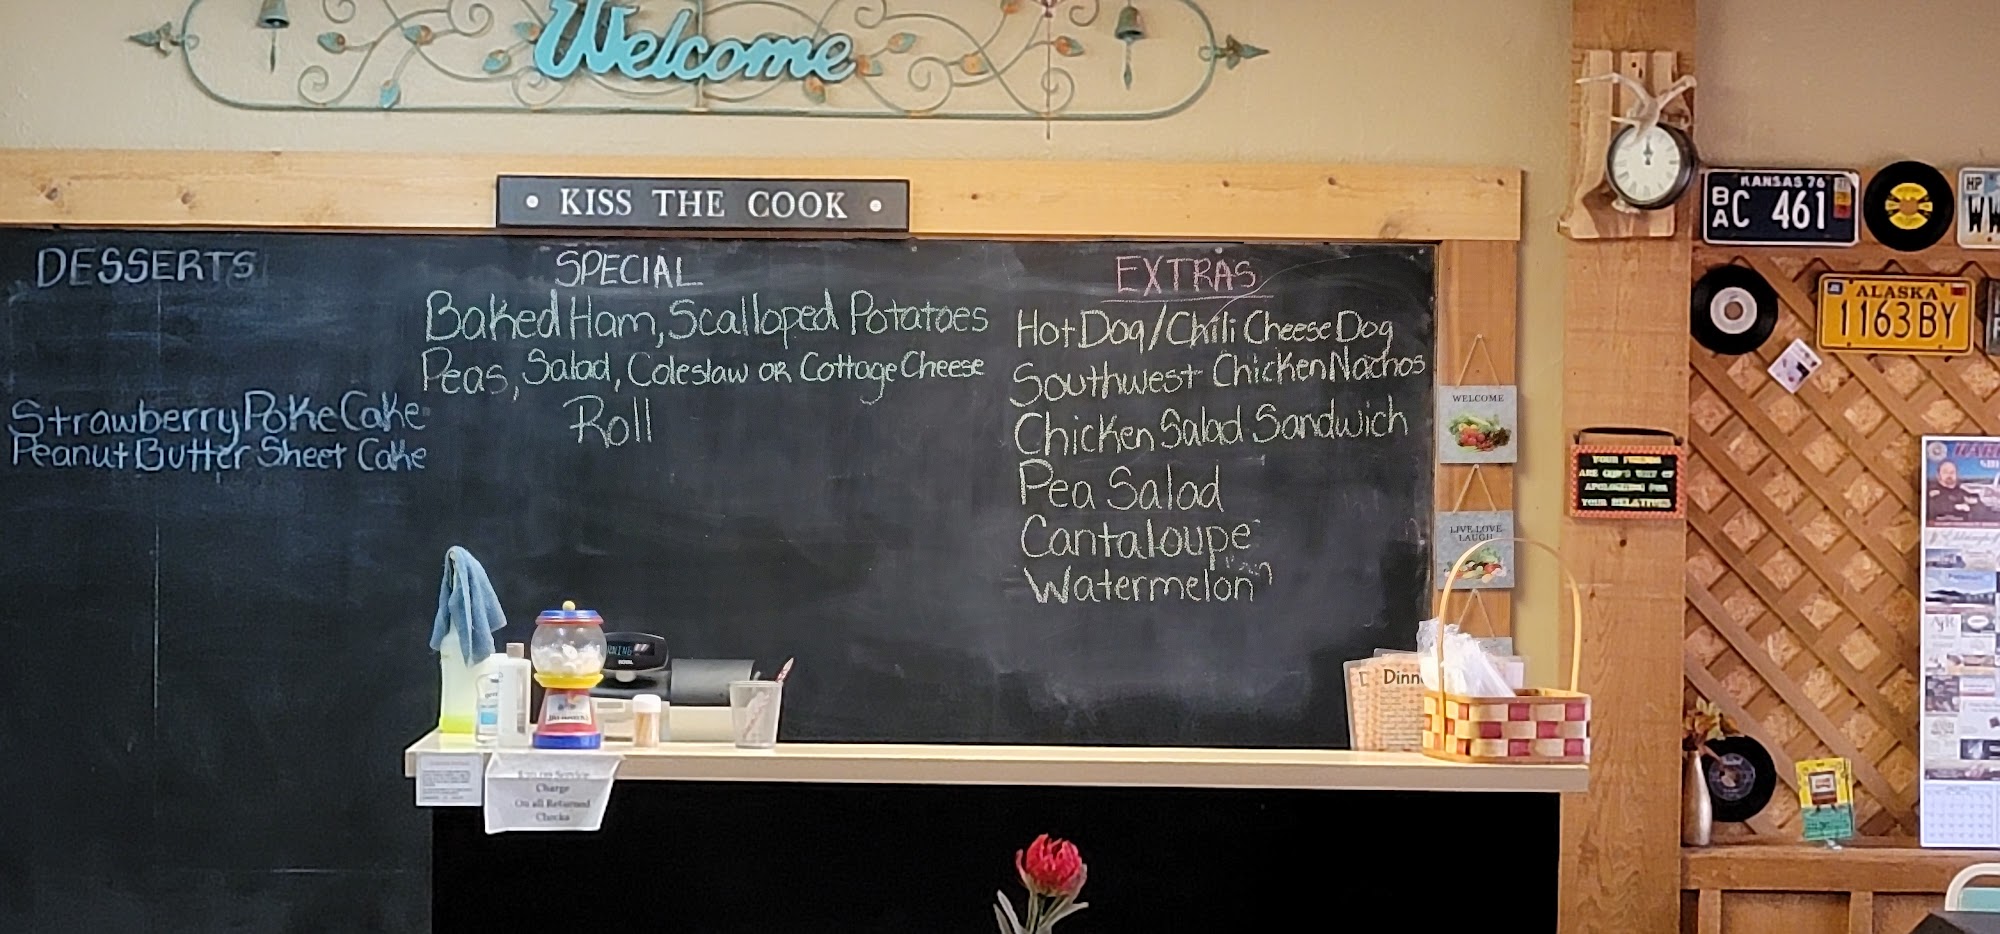 Welcome
• KISS THE COOK •
DESSERTS
Strawberry Poke Cake
Peanut Butter Sheet Cake
SPECIAL
Baked Ham, Scalloped Potatoes
Peas, Salad, Coleslaw or Cottage Cheese
Roll
EXTRAS
Hot Dog/Chili Cheese Dog
Southwest Chicken Nachos
Chicken Salad Sandwich
Pea Salad
Cantaloupe
Watermelon
WELCOME
LIVE LOVE
LAUGH
KANSAS 76
BA C 461
HP
ALASKA
1163 BY
YOUR FRIENDS
ARE GOD'S WAY OF
APOLOGIZING FOR
YOUR RELATIVES
Dinn
Service
Charge
On all Returned
Checks